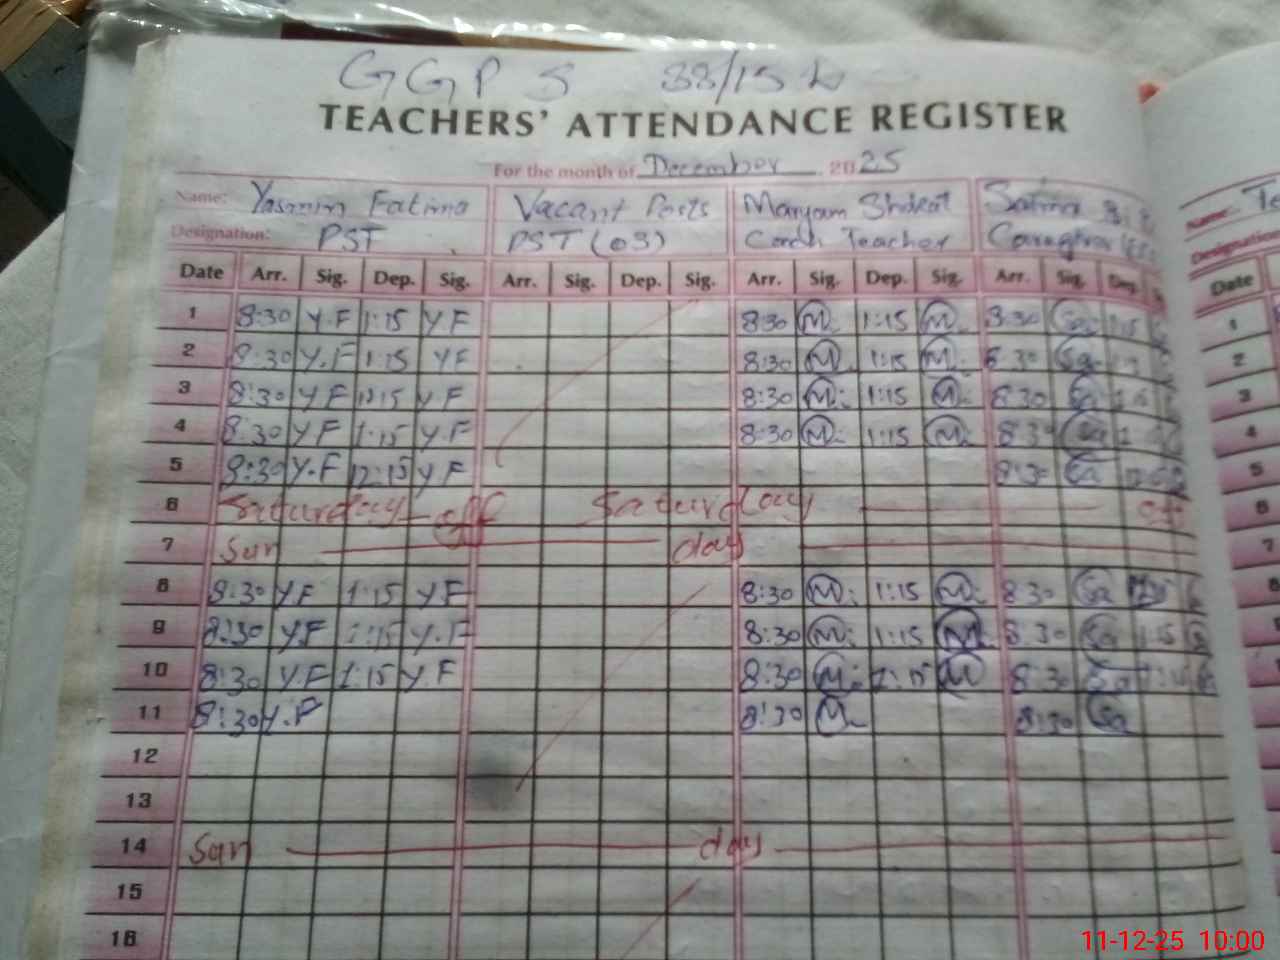 GGPS 38/15 L
TEACHERS' ATTENDANCE REGISTER
For the month of December 2025
Name: Yasmin Fatima Vacant Posts Maryam Shokat Safina
Designation: PST PST (03) Coach Teacher
Date Arr. Sig. Dep. Sig. Arr. Sig. Dep. Sig. Arr. Sig. Dep. Sig. Arr. Sig. Dep.
1 8:30 Y.F 1:15 Y.F 8:30 M. 1:15 M. 8:30 Sa
2 8:30 Y.F 1:15 YF 8:30 M. 1:15 M. 8:30 Sa
3 8:30 YF 1:15 Y.F 8:30 M. 1:15 M. 8:30 Sa
4 8:30 YF 1:15 Y.F 8:30 M. 1:15 M. 8:30 Sa
5 8:30 Y.F 12:15 Y.F 8:30 Sa
6 Saturday off Saturday off
7 Sun day
8 8:30 YF 1:15 YF 8:30 M. 1:15 M. 8:30 Sa
9 8:30 Y.F 1:15 Y.F 8:30 M. 1:15 M. 8:30 Sa 1:15
10 8:30 Y.F 1:15 Y.F 8:30 M. 1:15 M 8:30 Sa 1:15
11 8:30 Y.F 8:30 M. 8:30 Sa
12
13
14 Sun day
15
16
Name:
Designation
Date
1
2
3
4
5
6
7
11-12-25 10:00